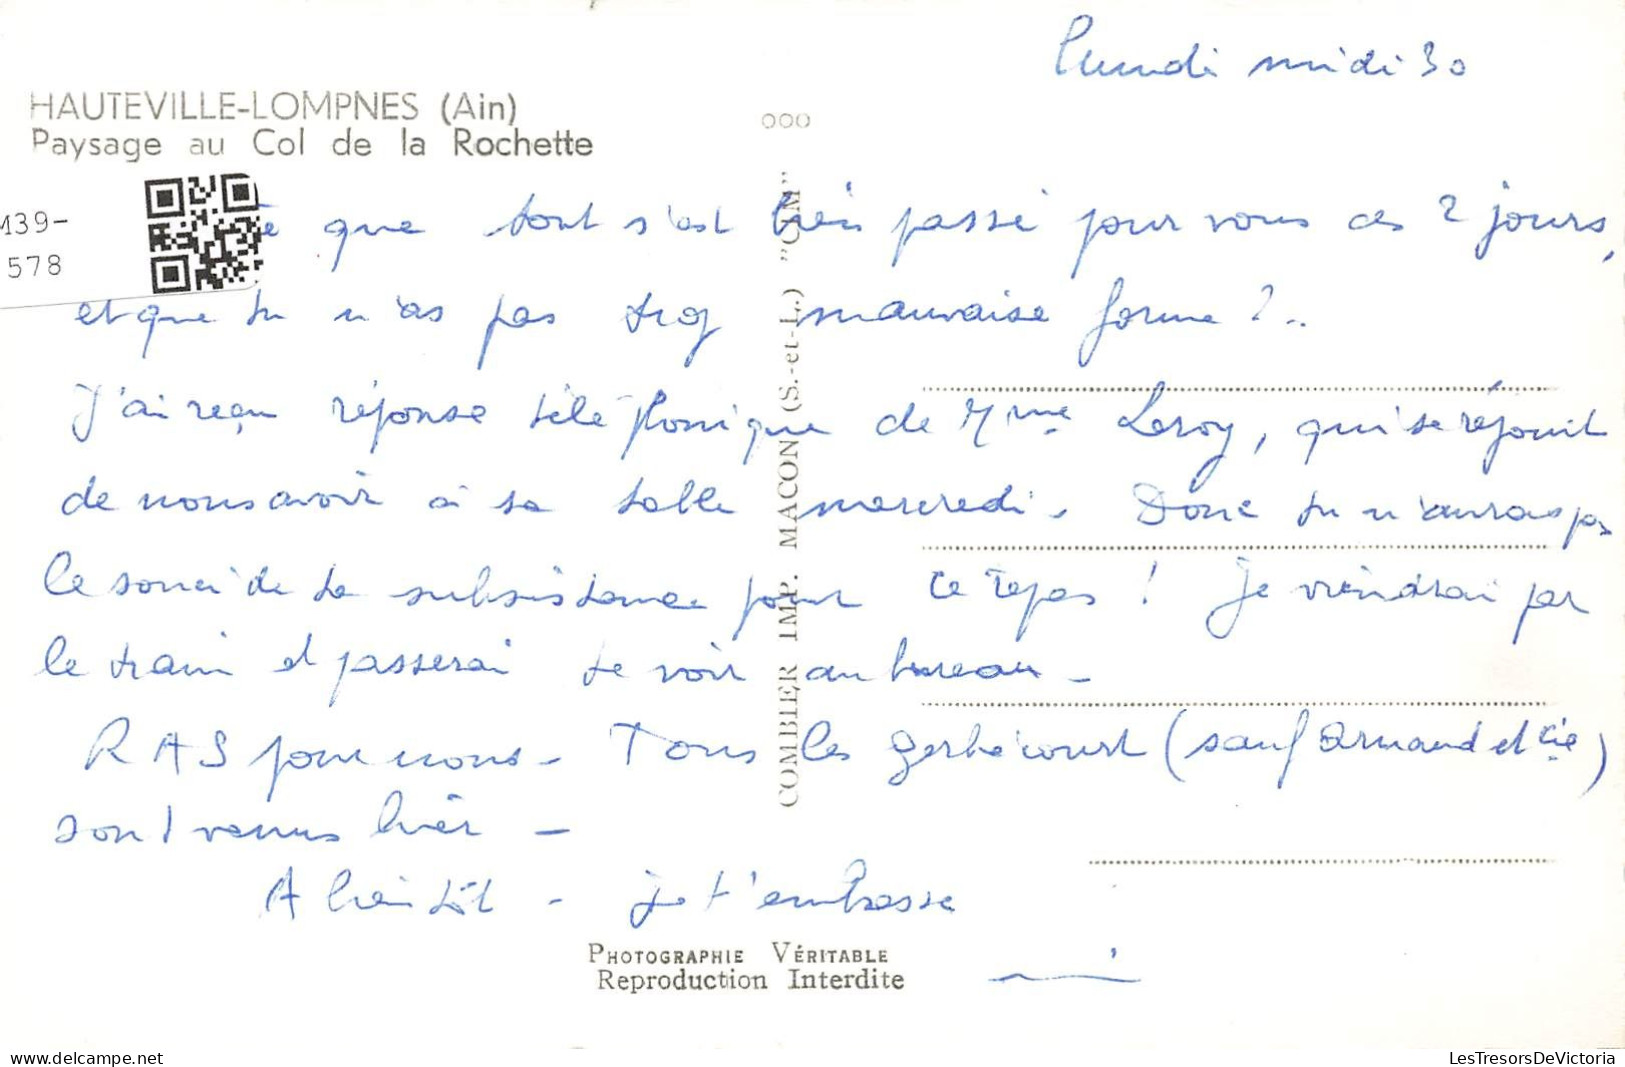 Lundi midi 30
HAUTEVILLE-LOMPNES (Ain)
Paysage au Col de la Rochette
000
139-
578
que tout s'est bien passé pour vous ces 2 jours,
et que tu n'as pas trop mauvaise forme ?..
J'ai reçu réponse téléphonique de Mme Leroy, qui se réjouit
de nous avoir à sa table mercredi. Donc tu n'auras pas
le souci de ta subsistance pour ce repas ! Je viendrai par
le train et passerai te voir au bureau -
RAS pour nous - Tous les Gerbécourt (sauf Armand et Cie)
sont venus hier -
A bientôt - je t'embrasse
COMBIER IMP. MACON (S.-et-L.) "CIM"
PHOTOGRAPHIE VÉRITABLE
Reproduction Interdite
www.delcampe.net
LesTresorsDeVictoria